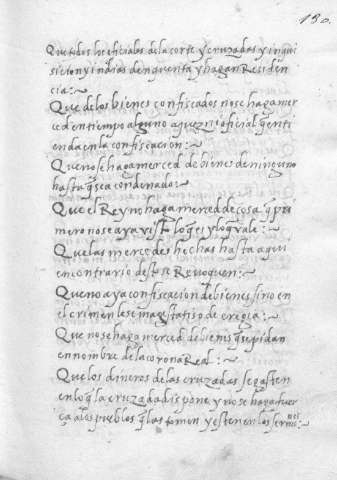 130.
Que todos los oficiales de la corte y cruzadas y inqui
sicion y indias den quenta y hagan Residen
cia:~
Que de los bienes confiscados no se haga mer
ced en tiempo alguno a juez ni oficial q̃ enti
enda en la confiscacion:~
Que no se haga merced de bienes de ninguno
hasta q̃ sea condenado:~
Que el Rey no haga merced de cosa q̃ pri
mero no se aya visto lo q̃ es y lo q̃ vale:~
Que las mercedes hechas hasta aqui
en contrario desto se Revoquen:~
Que no aya confiscacion de bienes sino en
el crimen lese magestatis o de eregia:~
Que no se haga merced de bienes q̃ se pidan
en nombre de la corona Real:~
Que los dineros de las cruzadas se gasten
en lo q̃ la cruzada dispone y no se haga fuer
ça a los pueblos q̃ las tomen y esten en los sermones:~